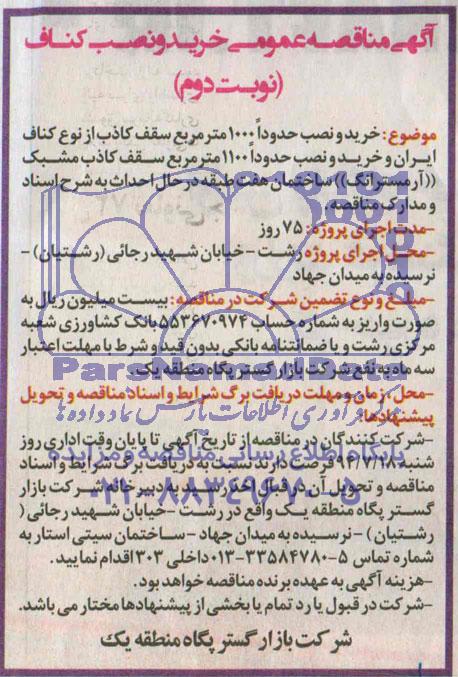 آگهی مناقصه عمومی خرید و نصب کناف
(نوبت دوم)
موضوع: خرید و نصب حدوداً ۱۰۰۰ متر مربع سقف کاذب از نوع کناف
ایران و خرید و نصب حدوداً ۱۱۰۰ متر مربع سقف کاذب مشبک
((آرمسترانگ)) ساختمان هفت طبقه در حال احداث به شرح اسناد
و مدارک مناقصه.
-مدت اجرای پروژه: ۷۵ روز
-محل اجرای پروژه رشت -خیابان شهید رجائی (رشتیان) -
نرسیده به میدان جهاد
-مبلغ و نوع تضمین شرکت در مناقصه: بیست میلیون ریال به
صورت واریز به شماره حساب ۵۵۳۶۷۰۹۷۴ بانک کشاورزی شعبه
مرکزی رشت و یا ضمانتنامه بانکی بدون قید و شرط با مهلت اعتبار
سه ماه به نفع شرکت بازار گستر پگاه منطقه یک.
-محل، زمان و مهلت دریافت برگ شرایط و اسناد مناقصه و تحویل
پیشنهادها:
-شرکت کنندگان در مناقصه از تاریخ آگهی تا پایان وقت اداری روز
شنبه ۹۴/۷/۱۸ فرصت دارند نسبت به دریافت برگ شرایط و اسناد
مناقصه و تحویل آن در قبال اخذ رسید به دبیرخانه شرکت بازار
گستر پگاه منطقه یک واقع در رشت -خیابان شهید رجائی (
رشتیان) -نرسیده به میدان جهاد -ساختمان سیتی استار به
شماره تماس ۵-۳۳۵۸۴۷۸۰-۰۱۳ داخلی ۳۰۳ اقدام نمایید.
-هزینه آگهی به عهده برنده مناقصه خواهد بود.
-شرکت در قبول یا رد تمام یا بخشی از پیشنهادها مختار می باشد.
شرکت بازار گستر پگاه منطقه یک
ParsNamadData
گردآوری اطلاعات پارس نماد داده ها
پایگاه اطلاع رسانی مناقصه و مزایده
۰۲۱-۸۸۳۴۹۶۷۰-۵